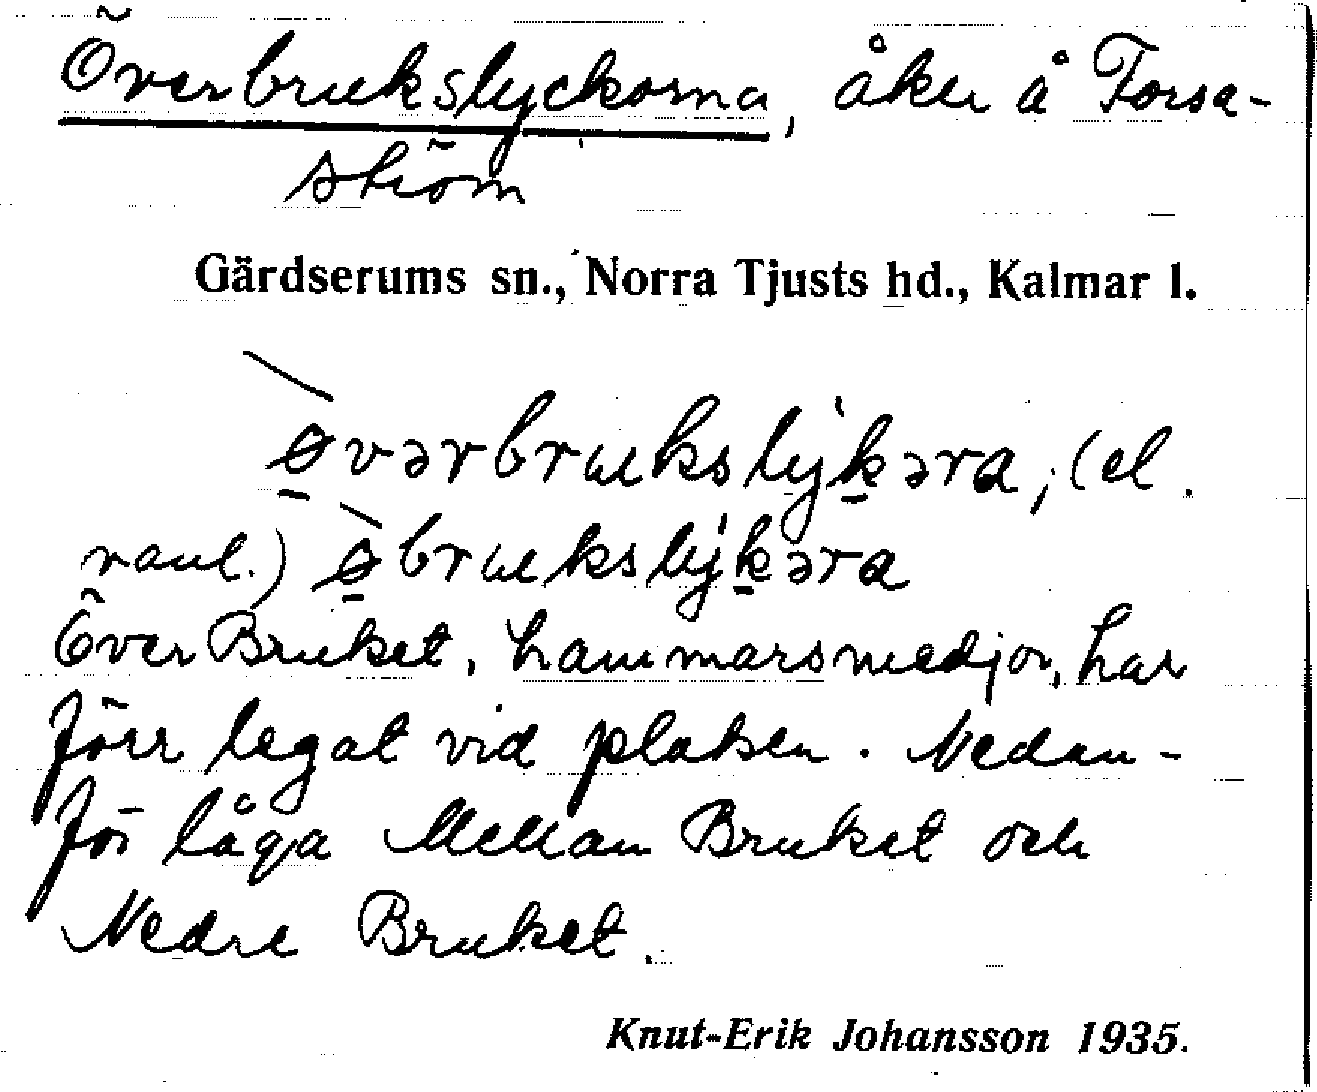 Överbrukslyckorna, åker å Forsa-
ström
Gärdserums sn., Norra Tjusts hd., Kalmar l.
øvərbrukslykəra, (el.
vanl.) øbrukslykəra
Över Bruket, hammarsmedjor, har
förr legat vid platsen. Nedan-
för låga Mellan Bruket och
Nedre Bruket.
Knut-Erik Johansson 1935.